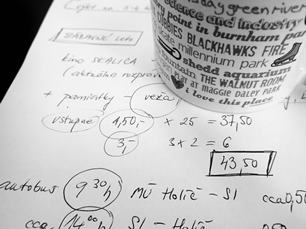 day green river
science and industry
point in burnham park
BLACKHAWKS FIRE
millennium park
shedd aquarium
THE WALNUT ROOM
AT MAGGIE DALEY PARK
i love this place
kino SKALICA
+ pamiatky - veža
vstupné 1,50,- x 25 = 37,50
3,- 3 x 2 = 6
43,50
autobus 9 30 h MÚ Holíč - SI cca 0,50
cca 14 00 h SI - Holíč